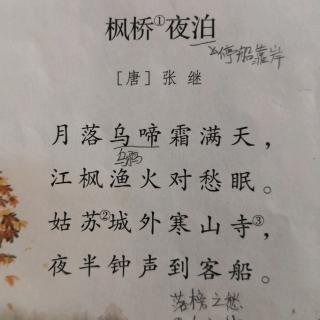 枫桥①夜泊
停船靠岸
［唐］张继
月落乌啼霜满天，
乌鸦
江枫渔火对愁眠。
姑苏②城外寒山寺③，
夜半钟声到客船。
落榜之愁